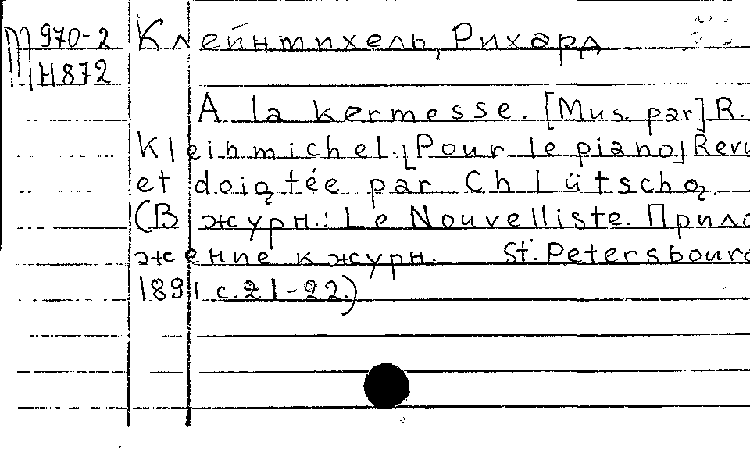 М 970-2 Клейнмихель, Рихард
Н872
A la kermesse. [Mus. par] R.
Kleinmichel. [Pour le piano] Revu
et doigtée par Ch Lütschg.
(В журн.: Le Nouvelliste. Прило
жение к журн. St. Petersbourg
1891 c. 21-22.)